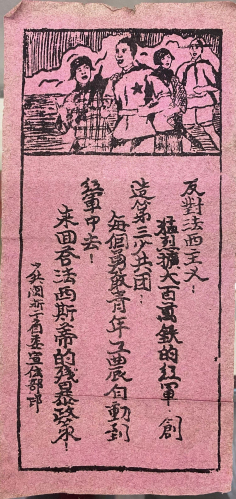 反對法西主义！
猛烈擴大百萬鉄的红軍，創
造第三少共国！
每個勇敢青年工農自動到
红軍中去！
来回答法西斯蒂的残暴政策！
少共闽浙省委宣传部印